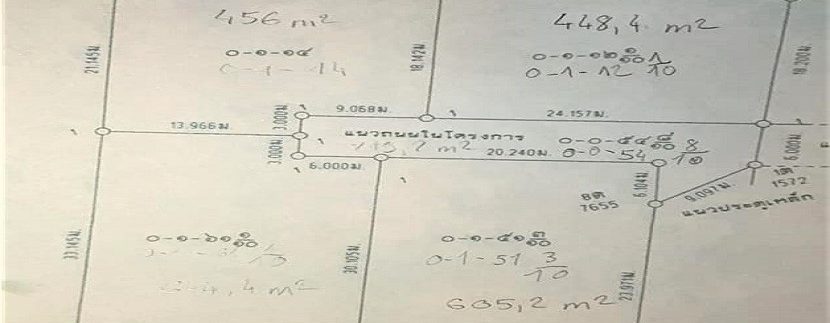 456 m²
448,4 m²
๐-๑-๑๔
0-1-14
๐-๑-๑๒ ๑/๑๐
0-1-12 1/10
21.145ม.
18.142ม.
18.200ม.
9.068ม.
24.157ม.
13.966ม.
3.000ม.
แนวถนนในโครงการ
๐-๐-๕๔ ๘/๑๐
0-0-54 8/10
3.000ม.
6.000ม.
20.240ม.
6.000ม.
6.104ม.
9.097ม.
1ต
1572
8ต
7655
แนวประตูเหล็ก
๐-๑-๖๑ ๑/๑๐
๐-๑-๕๑ ๓/๑๐
0-1-51 3/10
33.145ม.
30.105ม.
23.971ม.
605,2 m²